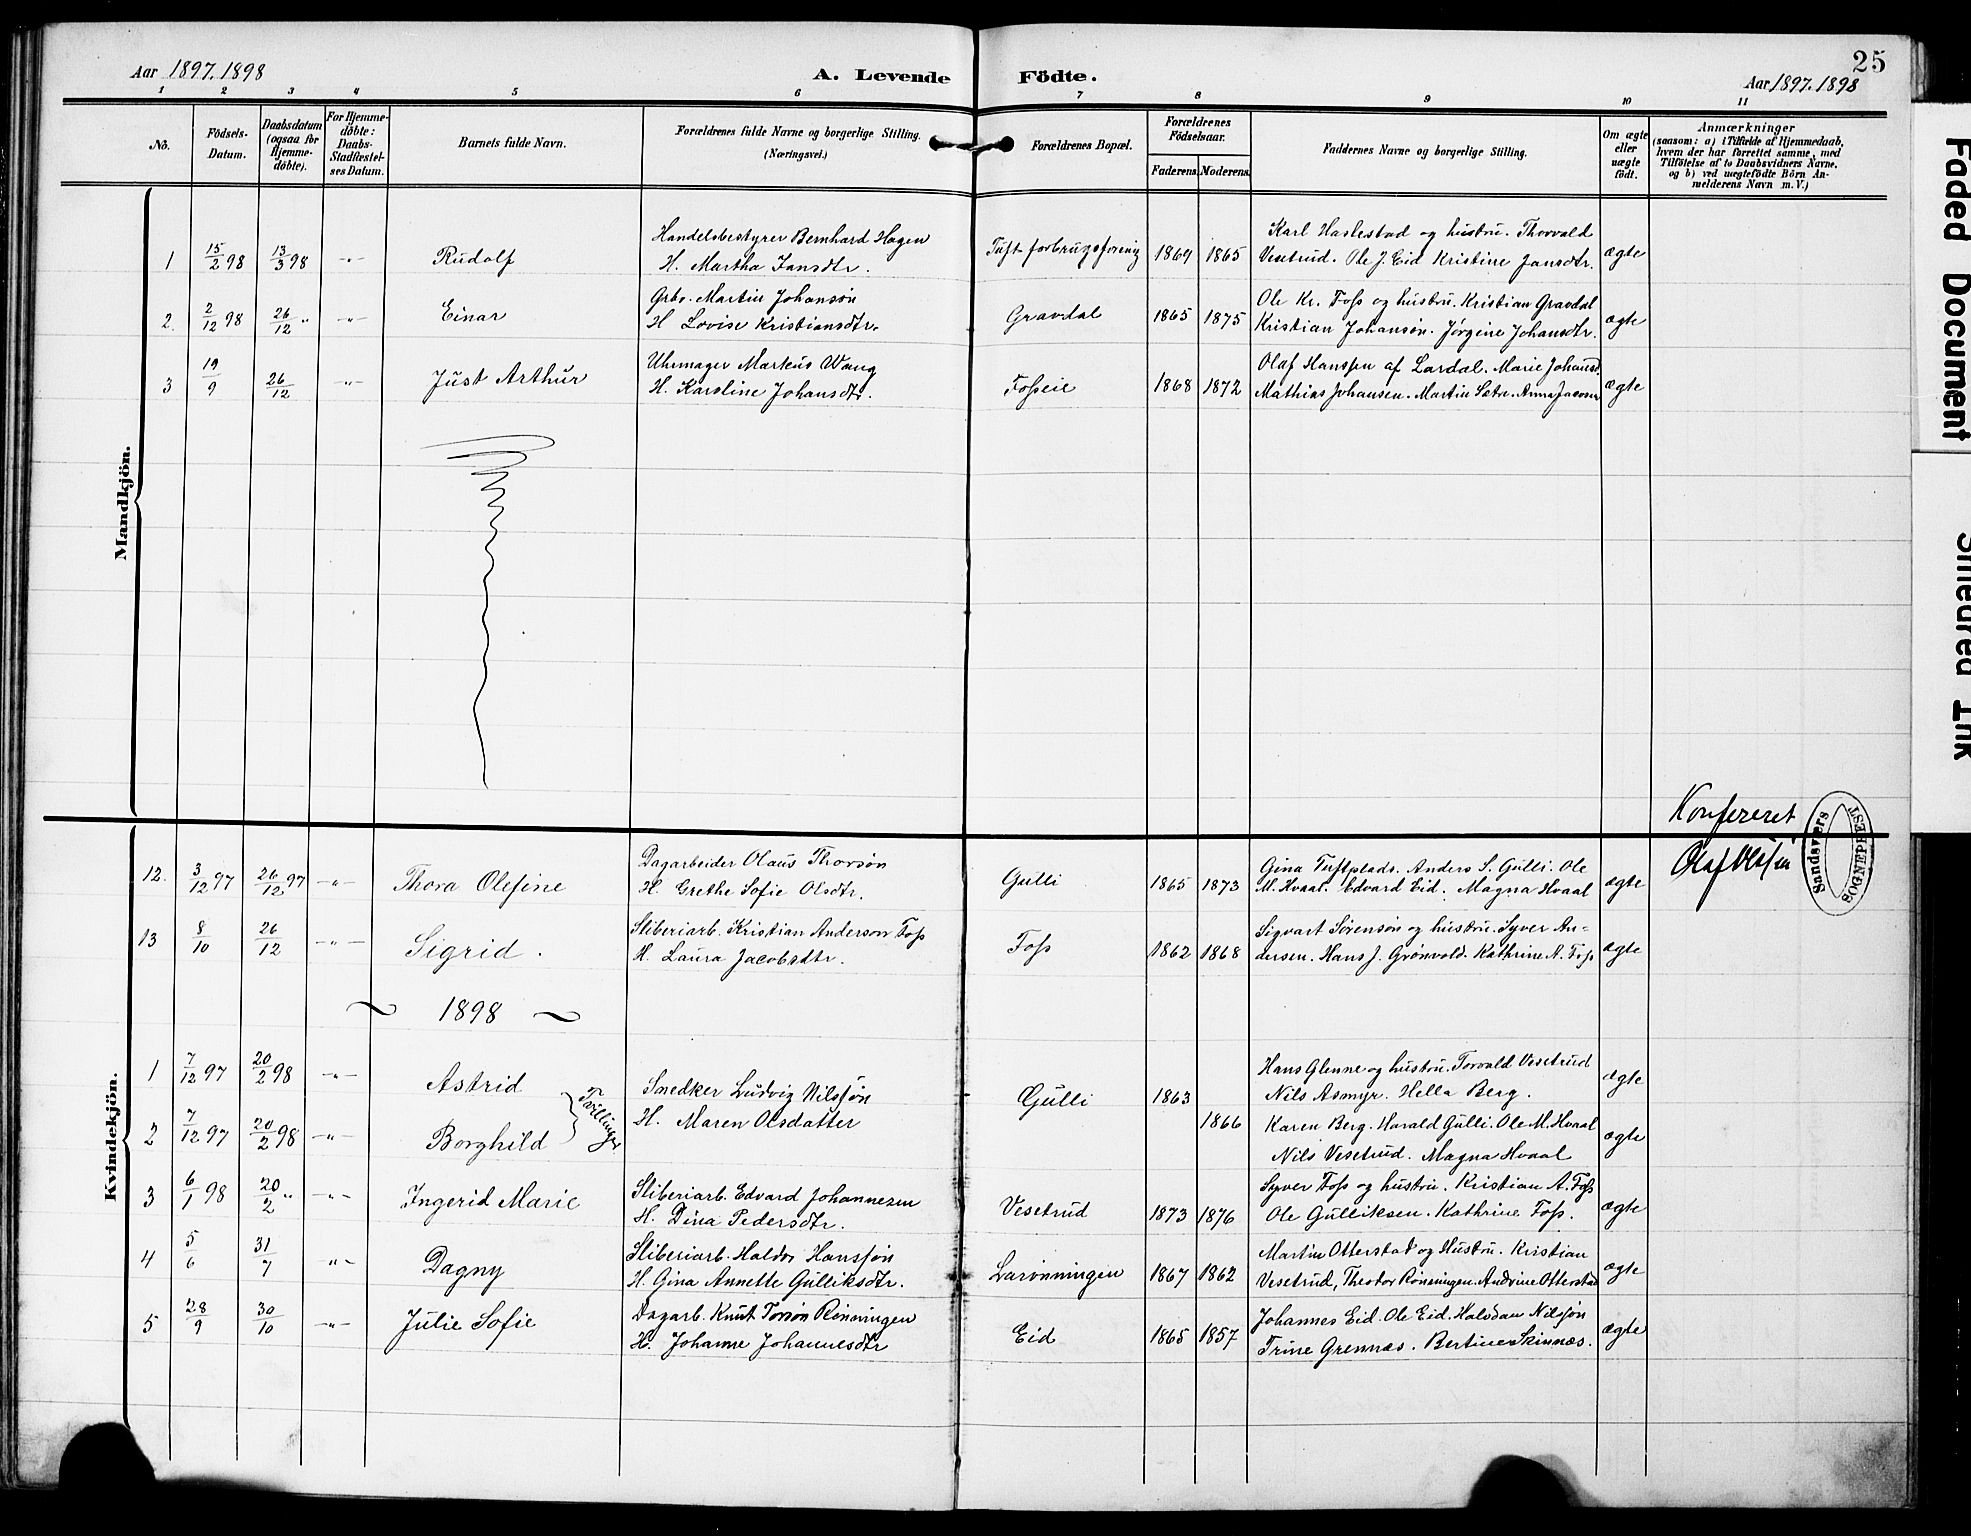 25
Aar 1897. 1898
A. Levende Födte.
Aar 1897. 1898
1 2 3 4 5 6 7 8 9 10 11
No.
Födsels-
Datum.
Daabsdatum
(ogsaa for
Hjemme-
døbte).
For Hjemme-
døbte:
Daabs-
Stadfæstel-
ses Datum.
Barnets fulde Navn.
Forældrenes fulde Navne og borgerlige Stilling.
(Næringsvei.)
Forældrenes Bopæl.
Forældrenes
Födselsaar.
Faderens. Moderens.
Faddernes Navne og borgerlige Stilling.
Om ægte
eller
uægte
födt.
Anmærkninger
(saasom: a) i Tilfælde af Hjemmedaab,
hvem der har forrettet samme, med
Tilföielse af to Daabsvidners Navne,
og b) ved uægtefödte Börn An-
melderens Navn m. V.)
Mandkjön.
Handelsbestyrer Bernhard Hagen
Karl Haslestad og hustru. Thorvald
1 15/2 98 13/3 98 -"- Rudolf H. Martha Jansdtr. Tuft forbrugsforenig 1869 1865 Vesetrud. Ole J. Eid Kristine Jansdtr. ægte
Grbr. Martin Johansøn
Ole Kr. Foss og hustru. Kristian Gravdal
2. 2/12 98 26/12 " -"- Einar H Lovise Kristiansdtr. Gravdal 1865 1875 Kristian Johansøn. Jørgine Johansdtr. ægte
Uhrmager Markus Wang
Olaf Hanssen af Lardal. Marie Johansd.
3 19/9 26/12 -"- Just Arthur H. Karoline Johansdtr. Fosseie 1868 1872 Mathias Johansen. Martin Sætre. Anna ægte
Konfereret
Olaf
Sandsværs
SOGNEPREST
Kvindekjön.
Dagarbeider Olaus Thorsøn
Gina Tuftplads. Anders S. Gulli. Ole
12. 3/12 97 26/12 97 -"- Thora Olefine H. Grethe Sofie Olsdtr. Gulli 1865 1873 M. Hvaal. Edvard Eid. Magna Hvaal ægte
Sliberiarb. Kristian Anderson Foss
Sigvart Sørensøn og hustru. Syver An-
13 8/10 26/12 -"- Sigrid. H. Laura Jacobsdtr. Foss 1862 1868 dersen. Hans J. Grønvold. Kathrine A. Foss ægte
~ 1898 ~
Hans Glenne og hustru. Torvald Vesetrud
1 7/12 97 20/2 98 -"- Astrid Snedker Ludvig Nilssøn Gulli 1863 Nils Asmyr. Hella Berg. ægte
Tvillinger
H. Maren Olsdatter 1866 Karen Berg. Harald Gulli. Ole M. Hvaal
2 7/12 97 20/2 98 -"- Borghild Nils Vesetrud. Magna Hvaal ægte
Sliberiarb. Edvard Johannesen
Syver Foss og hustru. Kristian A. Foss
3 6/1 98 20/2 " -"- Ingerid Marie H. Dina Pedersdtr. Vesetrud 1873 1876 Ole Gulliksen. Kathrine Foss. ægte
Sliberiarb. Haldor Hanssøn
Martin Otterstad og Hustru. Kristian
4 5/6 31/7 -"- Dagny H. Gina Annette Gulliksdtr. Larønningen 1867 1862 Vesetrud, Theodor Rønningen. Andrine Otterstad ægte
Dagarb. Knut Torsøn Rønningen
Johannes Eid. Ole Eid. Halvdan Nilssøn
5 28/9 30/10 -"- Julie Sofie H. Johanne Johannesdtr Eid 1865 1857 Trine Grennæs. Bertine Skinnæs. ægte
Faded Document
Smeared Ink